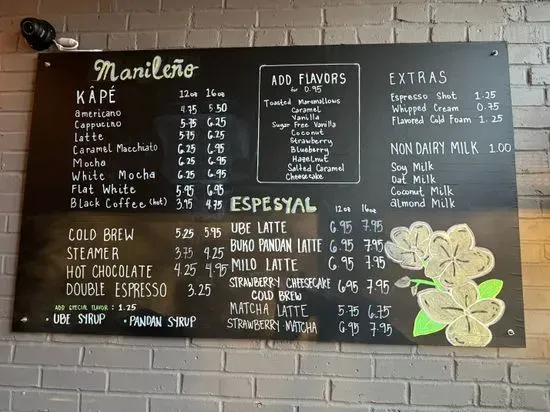 Manileño
KÂPÉ 12oz 16oz
americano 4.75 5.50
Cappucino 5.75 6.25
Latte 5.75 6.25
Caramel Macchiato 6.25 6.95
Mocha 6.25 6.95
White Mocha 6.25 6.95
Flat White 5.95 6.95
Black Coffee (hot) 3.75 4.75
COLD BREW 5.25 5.95
STEAMER 3.75 4.25
HOT CHOCOLATE 4.25 4.95
DOUBLE ESPRESSO 3.25
ADD SPECIAL FLAVOR : 1.25
• UBE SYRUP • PANDAN SYRUP
ADD FLAVORS
for 0.95
Toasted Marshmallows
Caramel
Vanilla
Sugar Free Vanilla
Coconut
Strawberry
Blueberry
Hazelnut
Salted Caramel
Cheesecake
ESPESYAL 12oz 16oz
UBE LATTE 6.95 7.95
BUKO PANDAN LATTE 6.95 7.95
MILO LATTE 6.95 7.95
STRAWBERRY CHEESECAKE 6.95 7.95
COLD BREW
MATCHA LATTE 5.75 6.75
STRAWBERRY MATCHA 6.95 7.95
EXTRAS
Espresso Shot 1.25
Whipped Cream 0.75
Flavored Cold Foam 1.25
NON DAIRY MILK 1.00
Soy Milk
Oat Milk
Coconut Milk
almond Milk